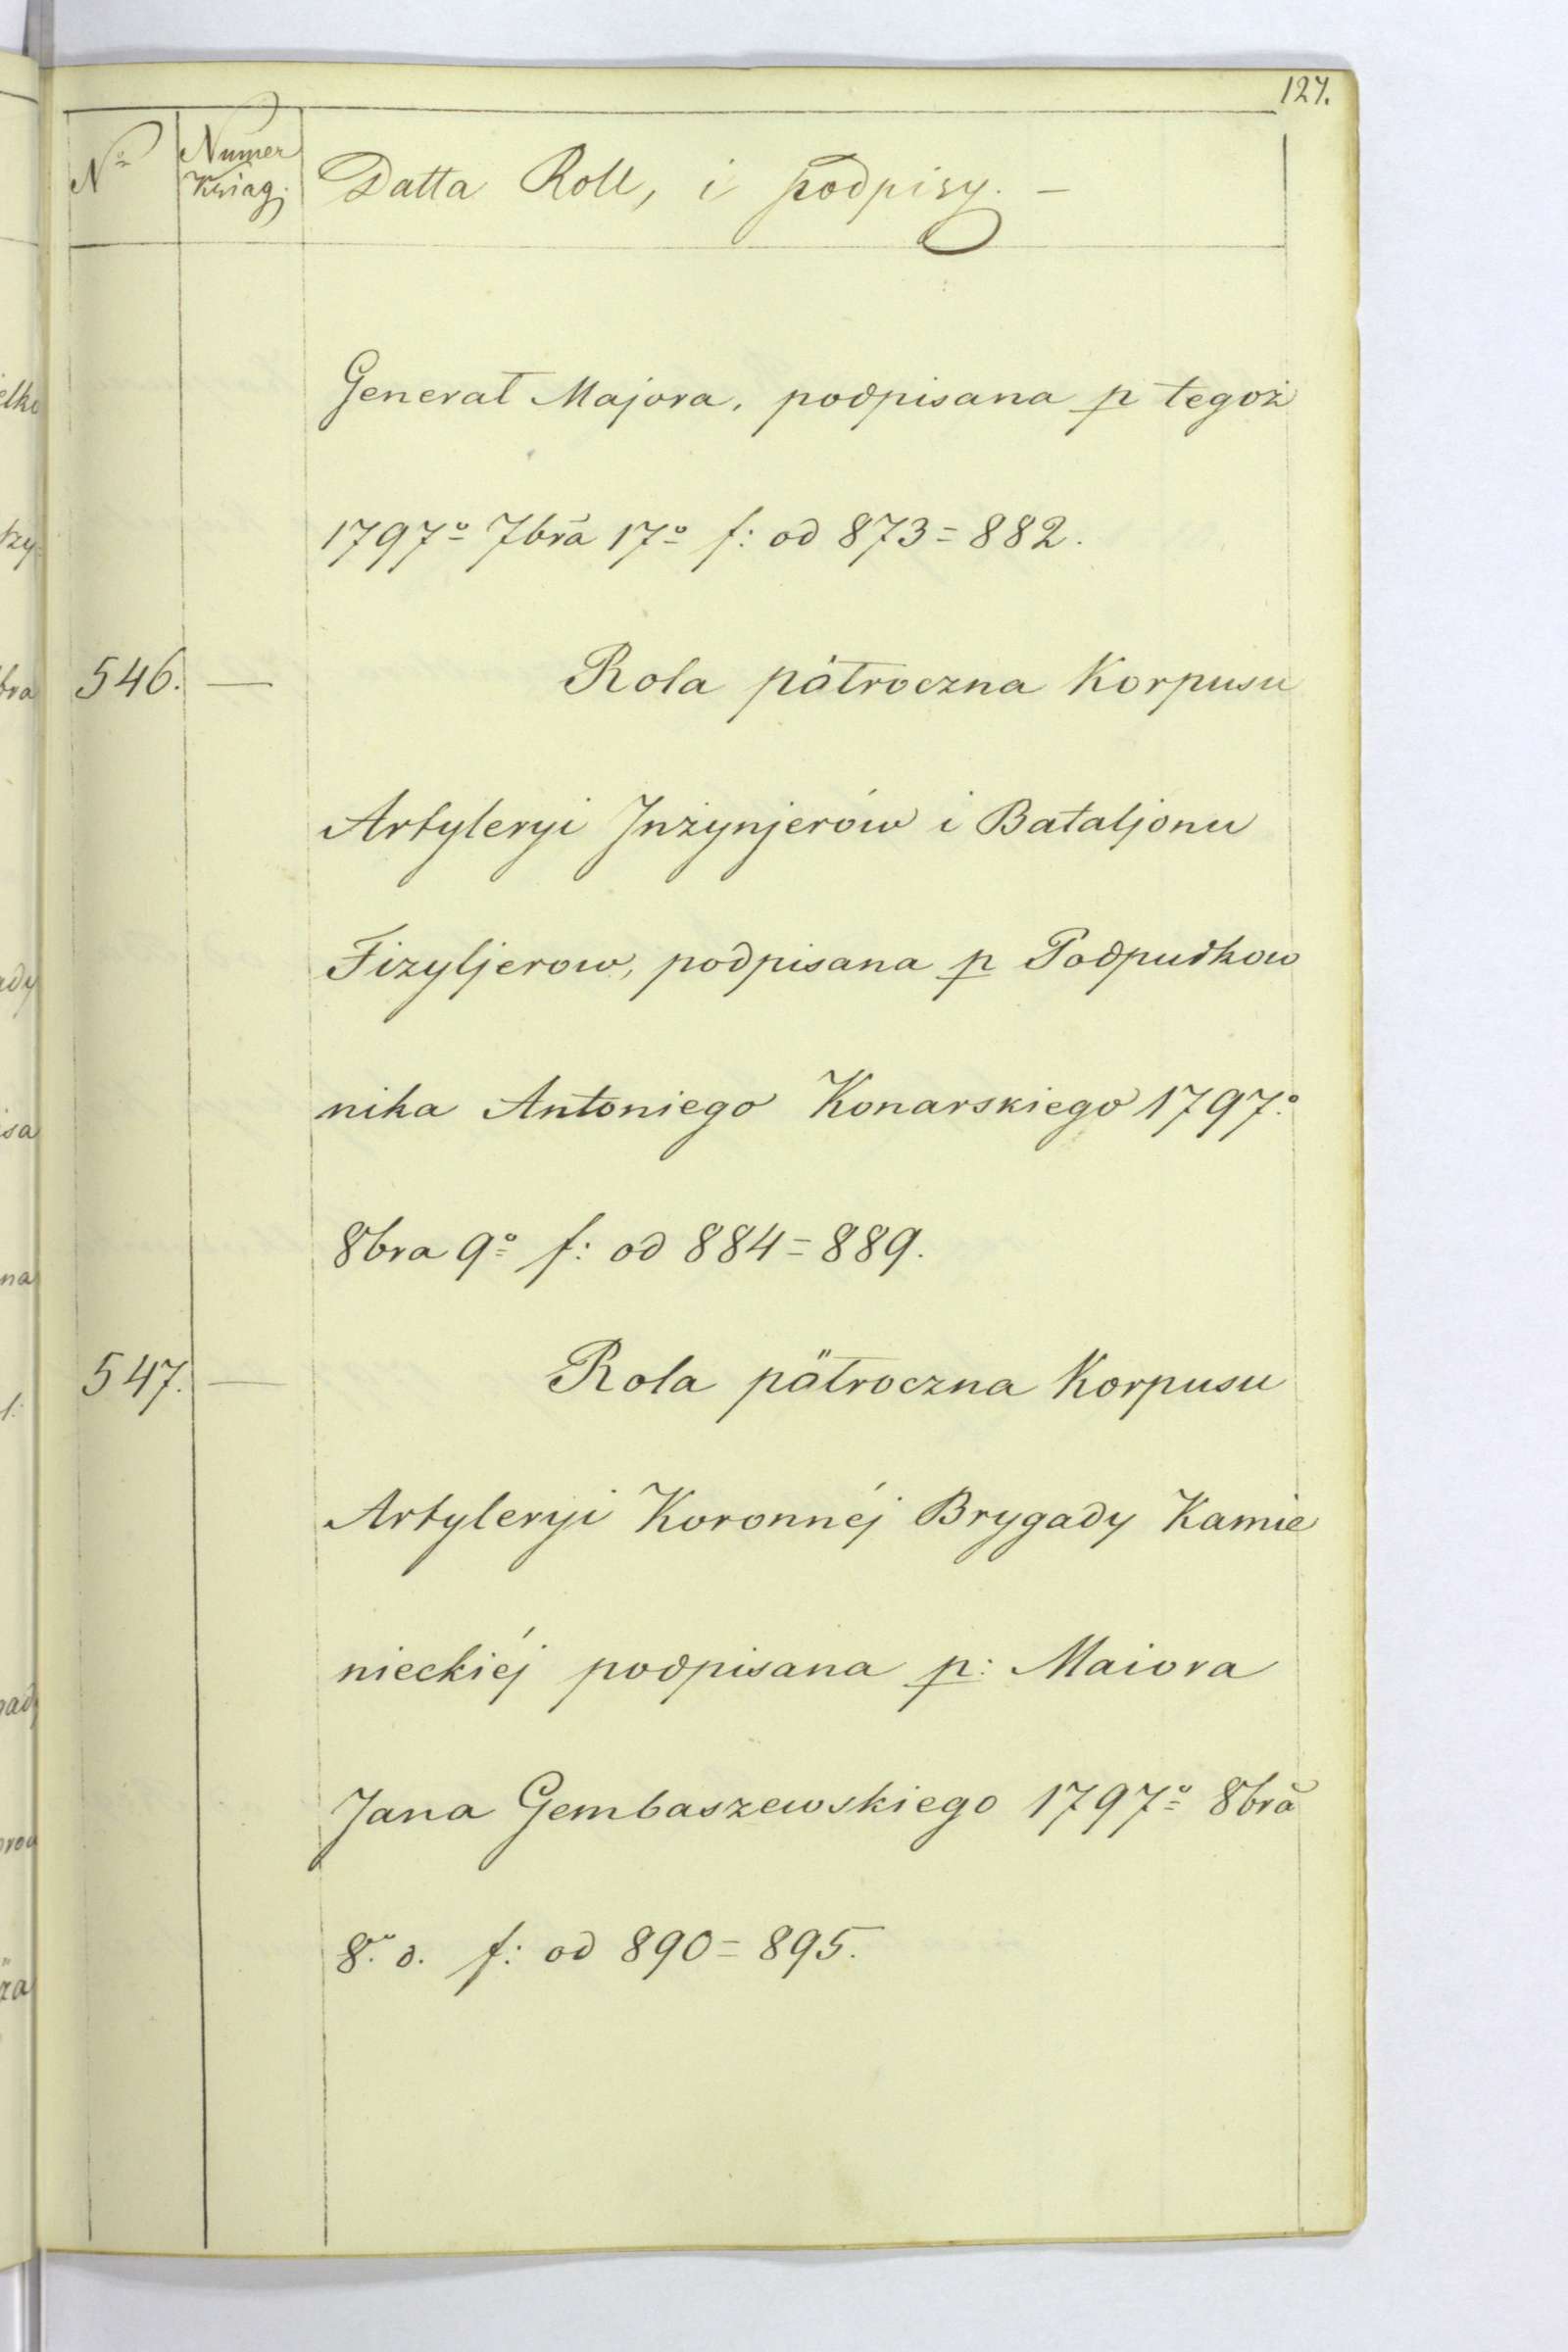 127.
Nº Numer Ksiag. Datta Roll, i podpisy. —
Generał Majora, podpisana p tegoż
1797º 7bra 17º f: od 873=882.
546. — Rola pátroczna Korpusu
Artyleryi Jnżynjerów i Bataljonu
Fizyljerow, podpisana p Podpułkow
nika Antoniego Konarskiego 1797º
8bra 9º f: od 884=889.
547. — Rola pätroczna Korpusu
Artyleryi Koronnéj Brygady Kamie
nieckiéj podpisana p: Maiora
Jana Gembaszewskiego 1797º 8bra
8º d. f: od 890=895.